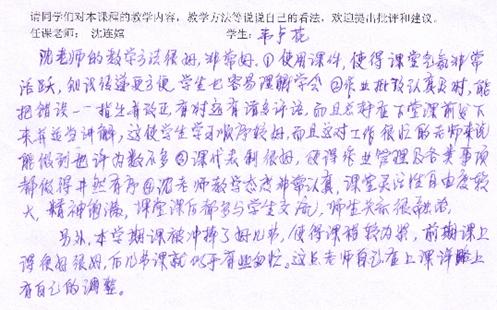 请同学们对本课程的教学内容，教学方法等说说自己的看法，欢迎提出批评和建议。
任课老师：沈连婠 学生：
沈老师的教学方法很好，非常好。①使用课件，使得课堂气氛非常
活跃，知识传递更方便 学生也容易理解学会 ②作业批改认真及时，能
把错误一一指出并改正，有时还有语言评语，而且总好在下堂课前发下
来并适当讲解，这使学生学习顺序较好，而且这对工作很忙的老师来说
能做到也许为数不多 ③课代表制很好，使得作业管理及各类事项
都做得井然有序 ④沈老师教学态度非常认真，课堂灵活性自由度较
大，精神饱满，课堂课后都多与学生交流，师生关系很融洽。
另外，本学期课被冲掉了好几节，使得课程较为紧，前期课上
得很好很好，后几节课就似乎有些匆忙。这点老师自己在上课详略上
有自己的调整。